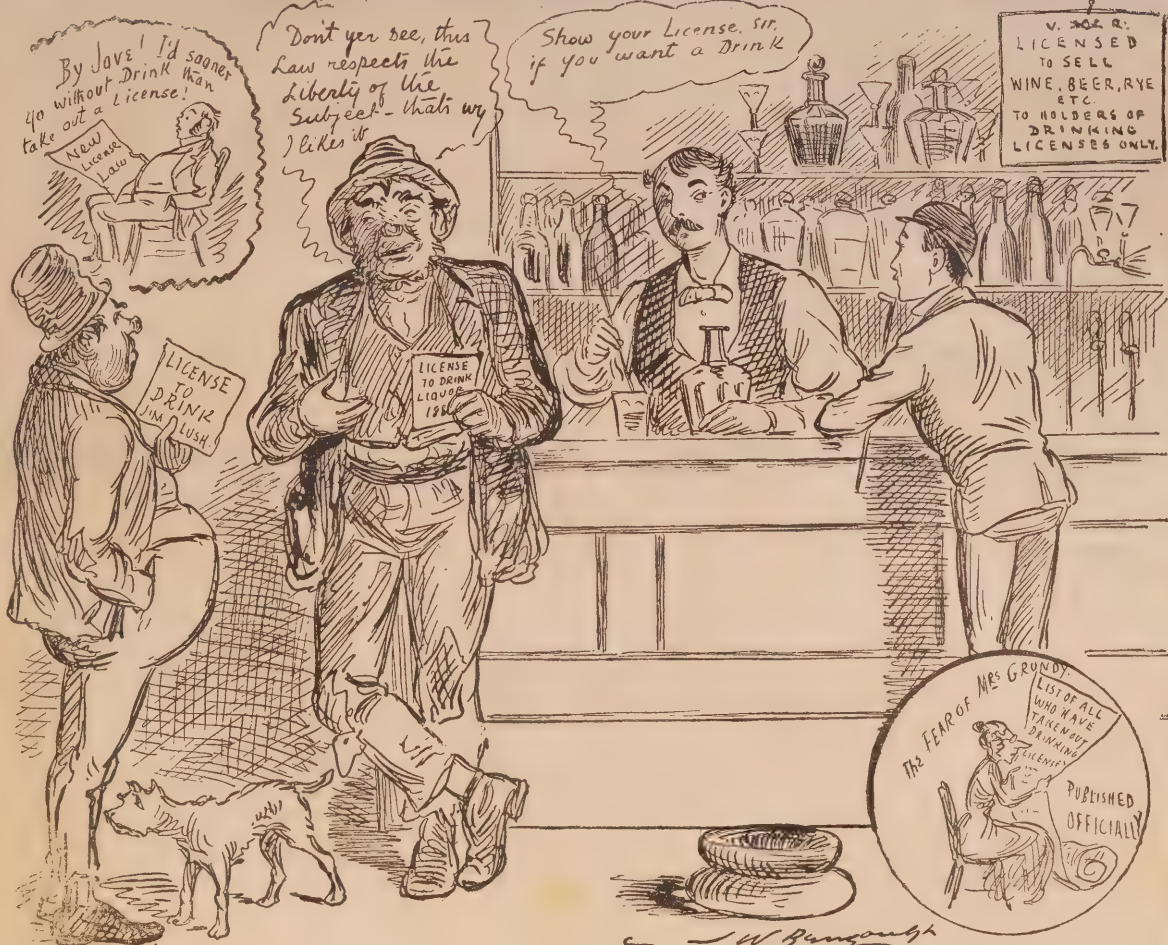 By Jove! I'd sooner
go without Drink than
take out a License!
New
License
Law
Don't yer see, this
Law respects the
Liberty of the
Subject - thats wy
I likes it
Show your License, sir,
if you want a Drink
LICENSED
TO SELL
WINE, BEER, RYE
ETC.
TO HOLDERS OF
DRINKING
LICENSES ONLY.
LICENSE
TO
DRINK
JIM LUSH.
LICENSE
TO DRINK
LIQUOR
The FEAR OF MRS GRUNDY.
LIST OF ALL
WHO HAVE
TAKEN OUT
DRINKING
LICENSES
PUBLISHED
OFFICIALLY
J W Bengough